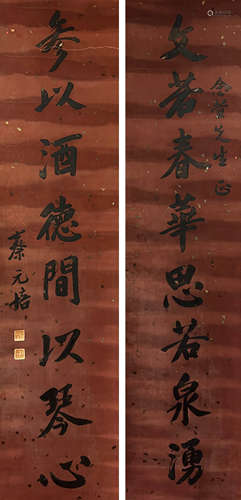 念萱先生正
文若春華思若泉湧
參以酒德間以琴心
蔡元培